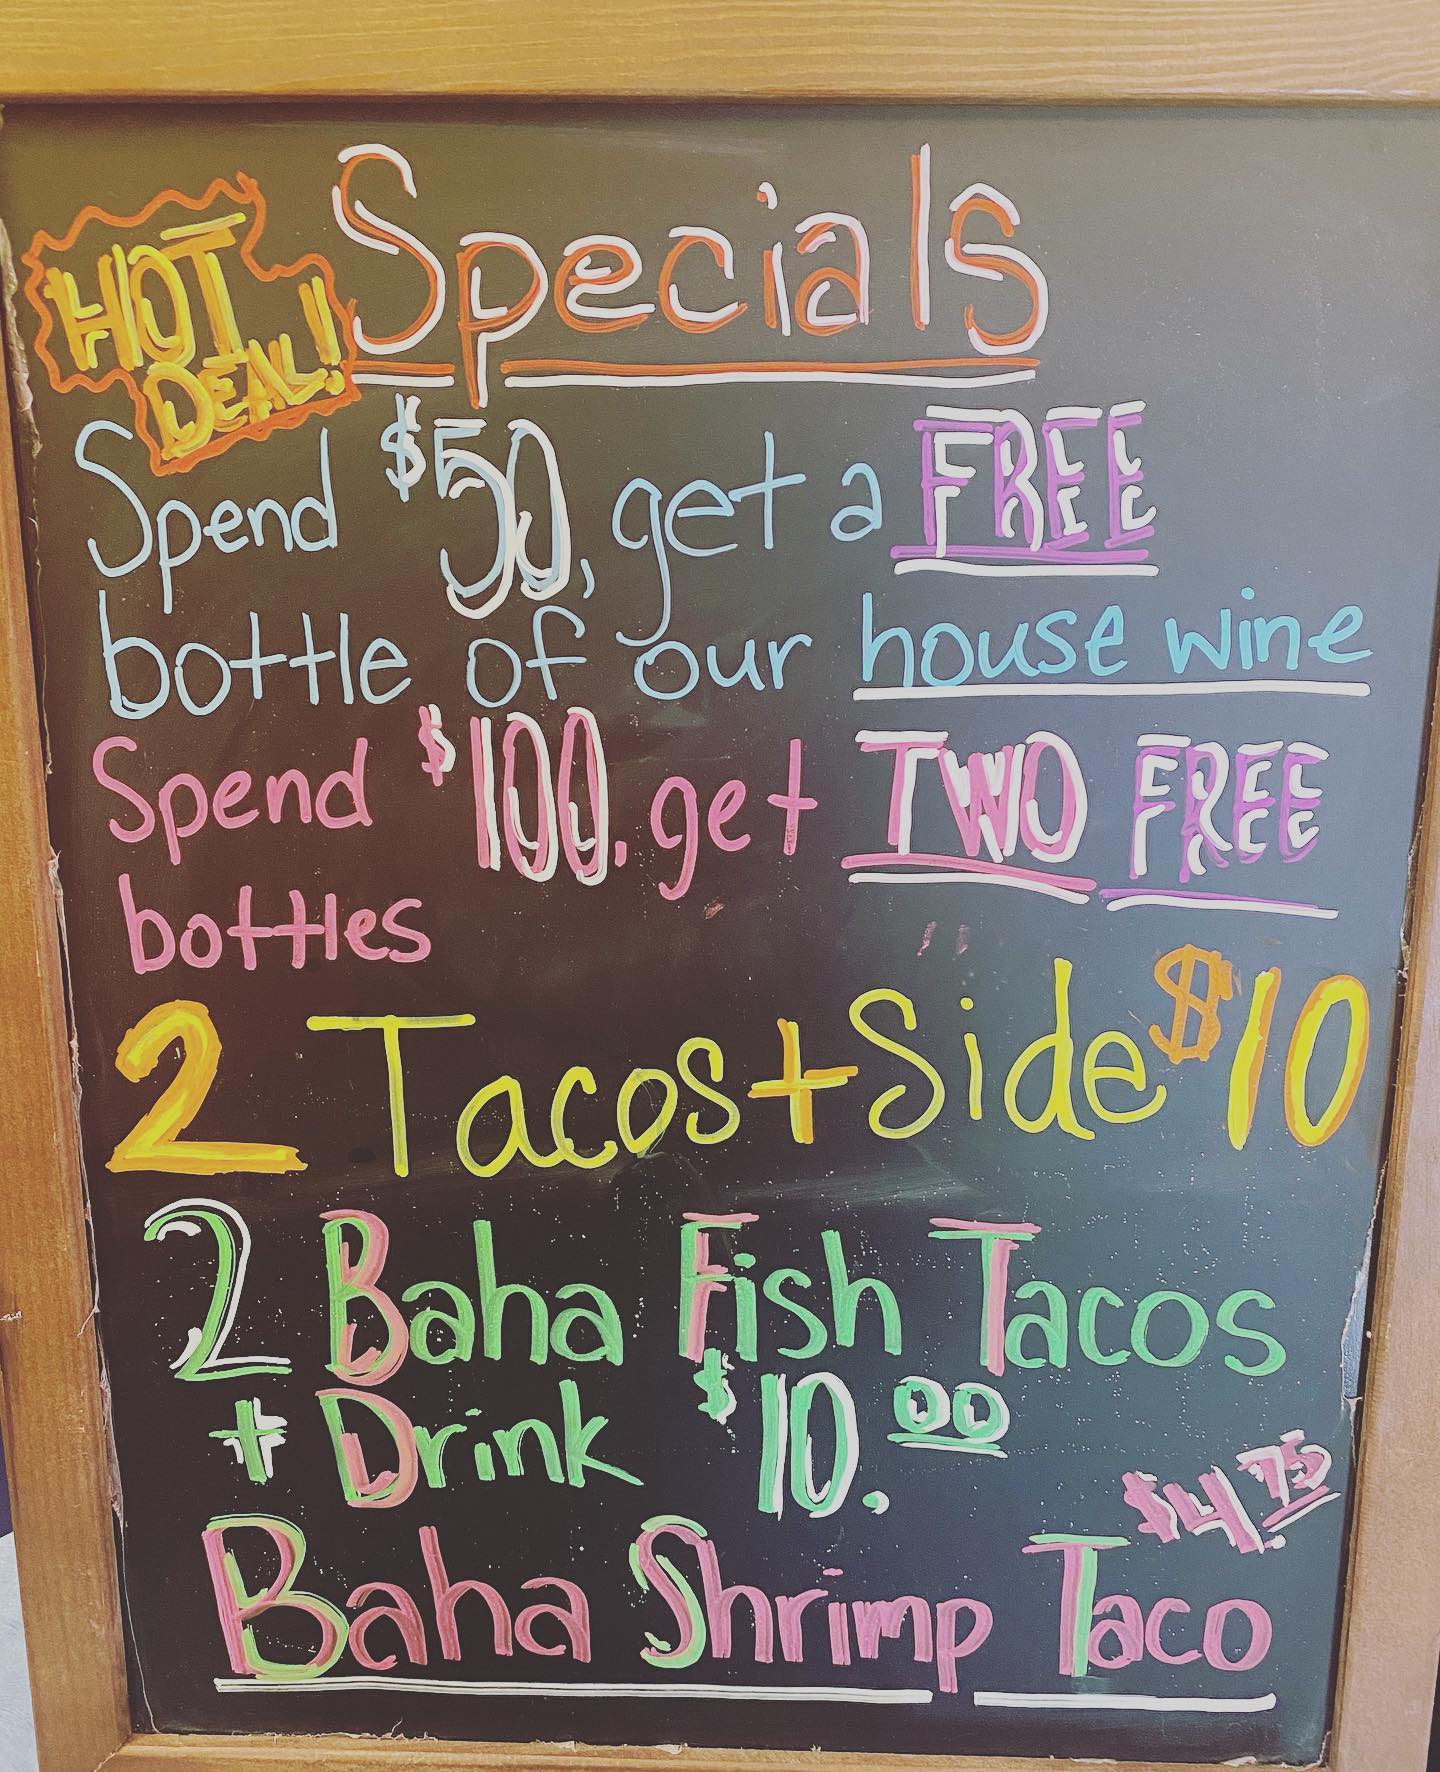 Specials
HOT
DEAL!
Spend $50, get a FREE
bottle of our house wine
Spend $100. get TWO FREE
bottles
2 Tacos + Side $10
2 Baha Fish Tacos
+ Drink $10.00
$4.75
Baha Shrimp Taco